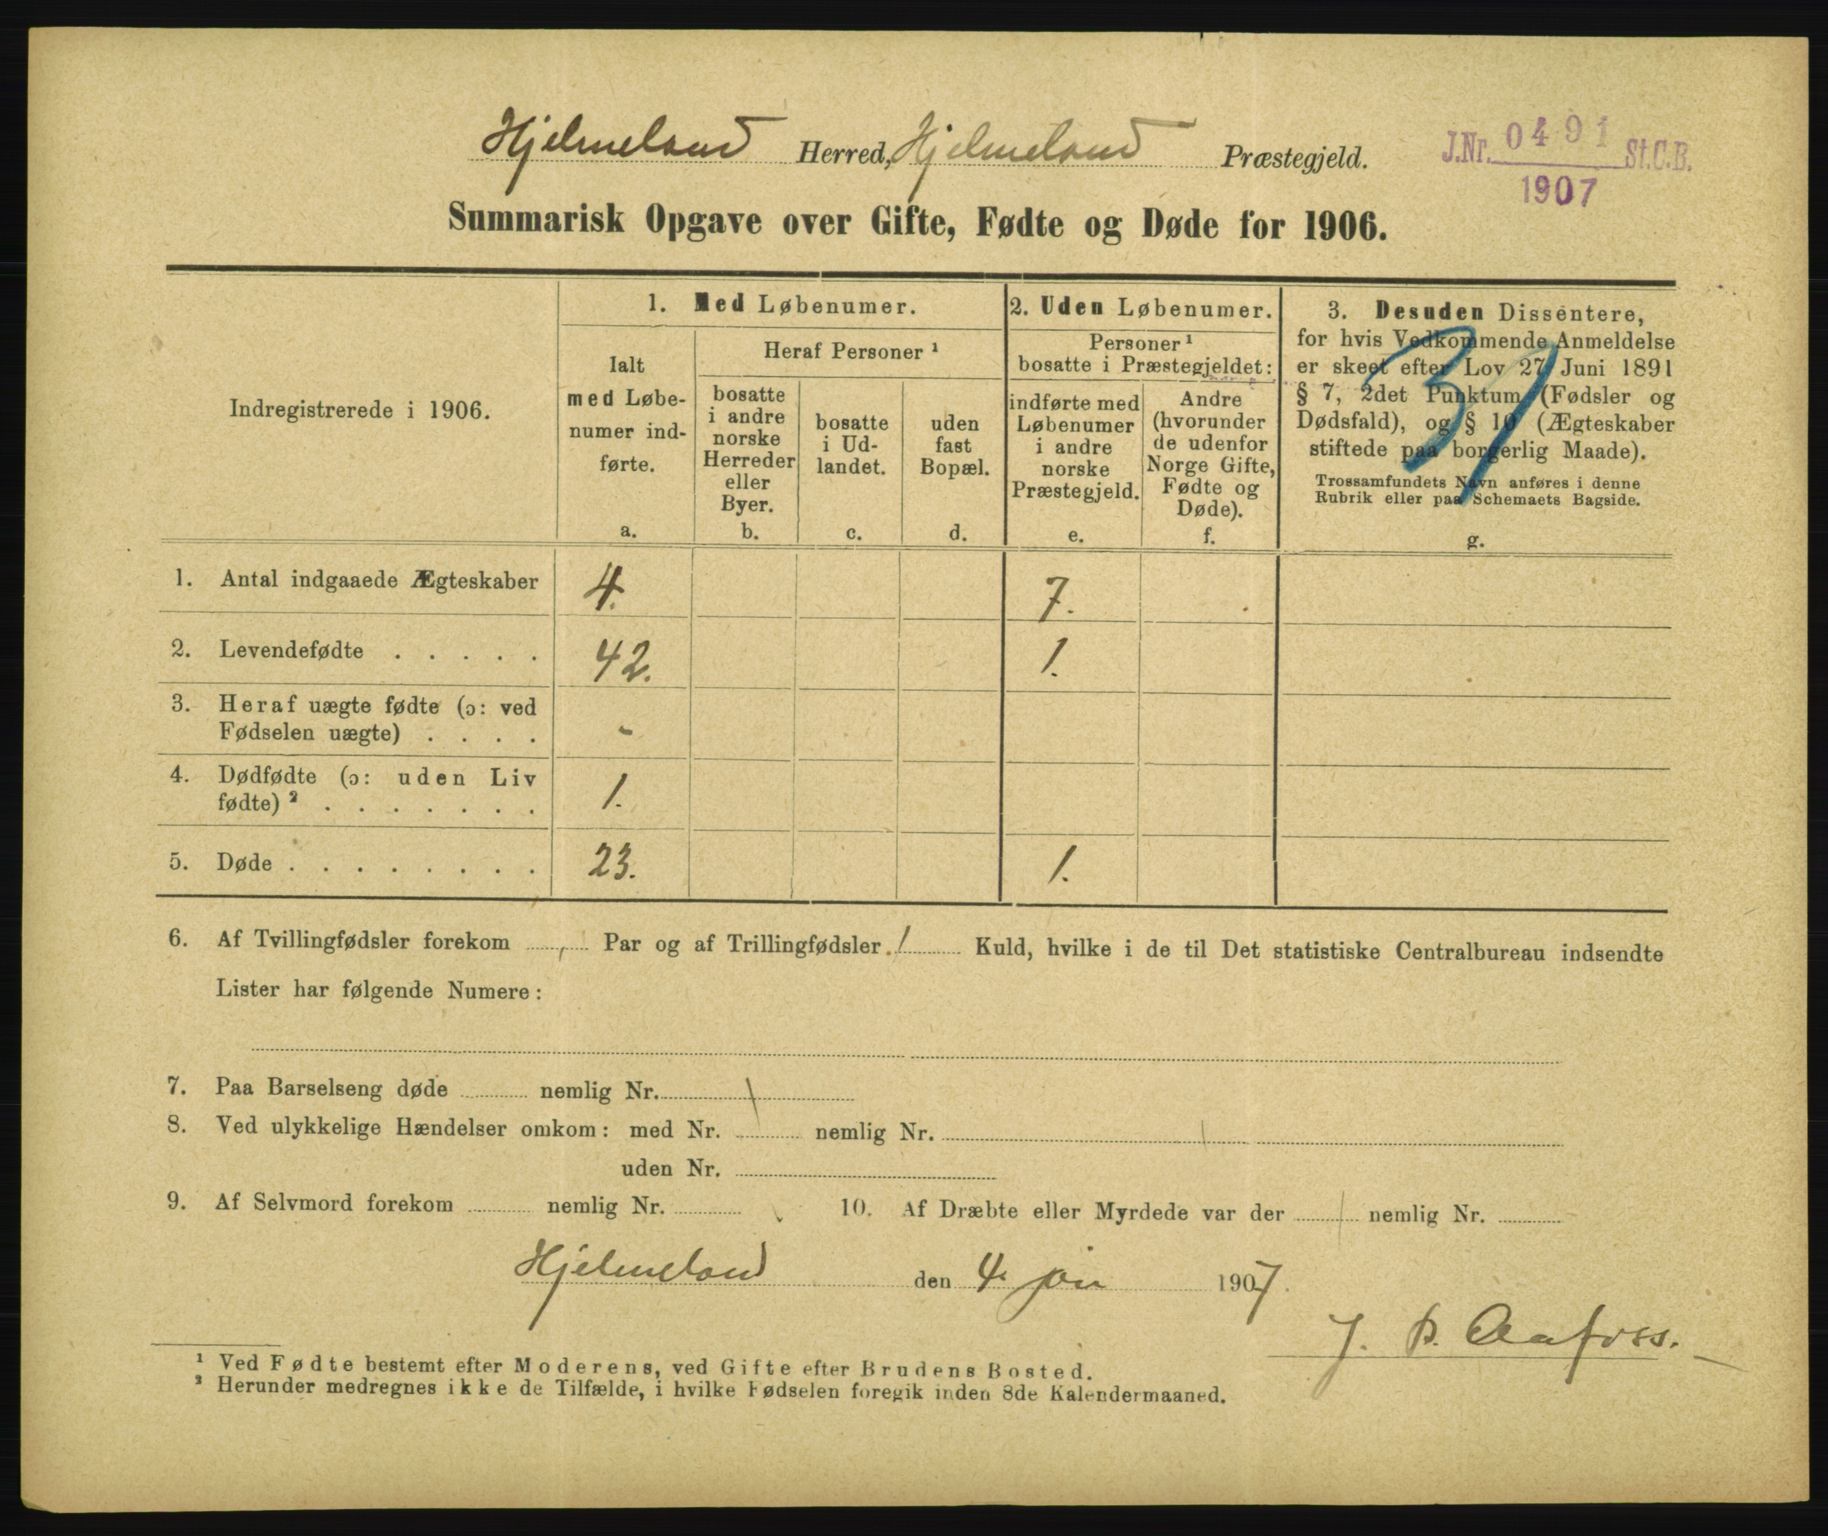 Hjelmeland Herred, Hjelmeland Præstegjeld.
J.Nr. 0491 St.C.B.
1907
Summarisk Opgave over Gifte, Fødte og Døde for 1906.
Indregistrerede i 1906.
1. Med Løbenumer.
Ialt
med Løbe-
numer ind-
førte.
a.
Heraf Personer ¹
bosatte
i andre
norske
Herreder
eller
Byer.
b.
bosatte
i Ud-
landet.
c.
uden
fast
Bopæl.
d.
2. Uden Løbenumer.
Personer ¹
bosatte i Præstegjeldet:
indførte med
Løbenumer
i andre
norske
Præstegjeld.
e.
Andre
(hvorunder
de udenfor
Norge Gifte,
Fødte og
Døde).
f.
3. Desuden Dissentere,
for hvis Vedkommende Anmeldelse
er skeet efter Lov 27 Juni 1891
§ 7, 2det Punktum (Fødsler og
Dødsfald), og § 10 (Ægteskaber
stiftede paa borgerlig Maade).
Trossamfundets Navn anføres i denne
Rubrik eller paa Schemaets Bagside.
g.
37
1. Antal indgaaede Ægteskaber 4. 7.
2. Levendefødte . . . . . 42. 1.
3. Heraf uægte fødte (ɔ: ved
Fødselen uægte) . . . . -
4. Dødfødte (ɔ: uden Liv
fødte) ² . . . . . . . 1.
5. Døde . . . . . . . . 23. 1.
6. Af Tvillingfødsler forekom Par og af Trillingfødsler / Kuld, hvilke i de til Det statistiske Centralbureau indsendte
Lister har følgende Numere:
7. Paa Barselseng døde nemlig Nr. /
8. Ved ulykkelige Hændelser omkom: med Nr. / nemlig Nr. /
uden Nr.
9. Af Selvmord forekom nemlig Nr. 10. Af Dræbte eller Myrdede var der / nemlig Nr.
Hjelmeland den 4. jan 1907.
J. B. Aafoss.
¹ Ved Fødte bestemt efter Moderens, ved Gifte efter Brudens Bosted.
² Herunder medregnes ikke de Tilfælde, i hvilke Fødselen foregik inden 8de Kalendermaaned.